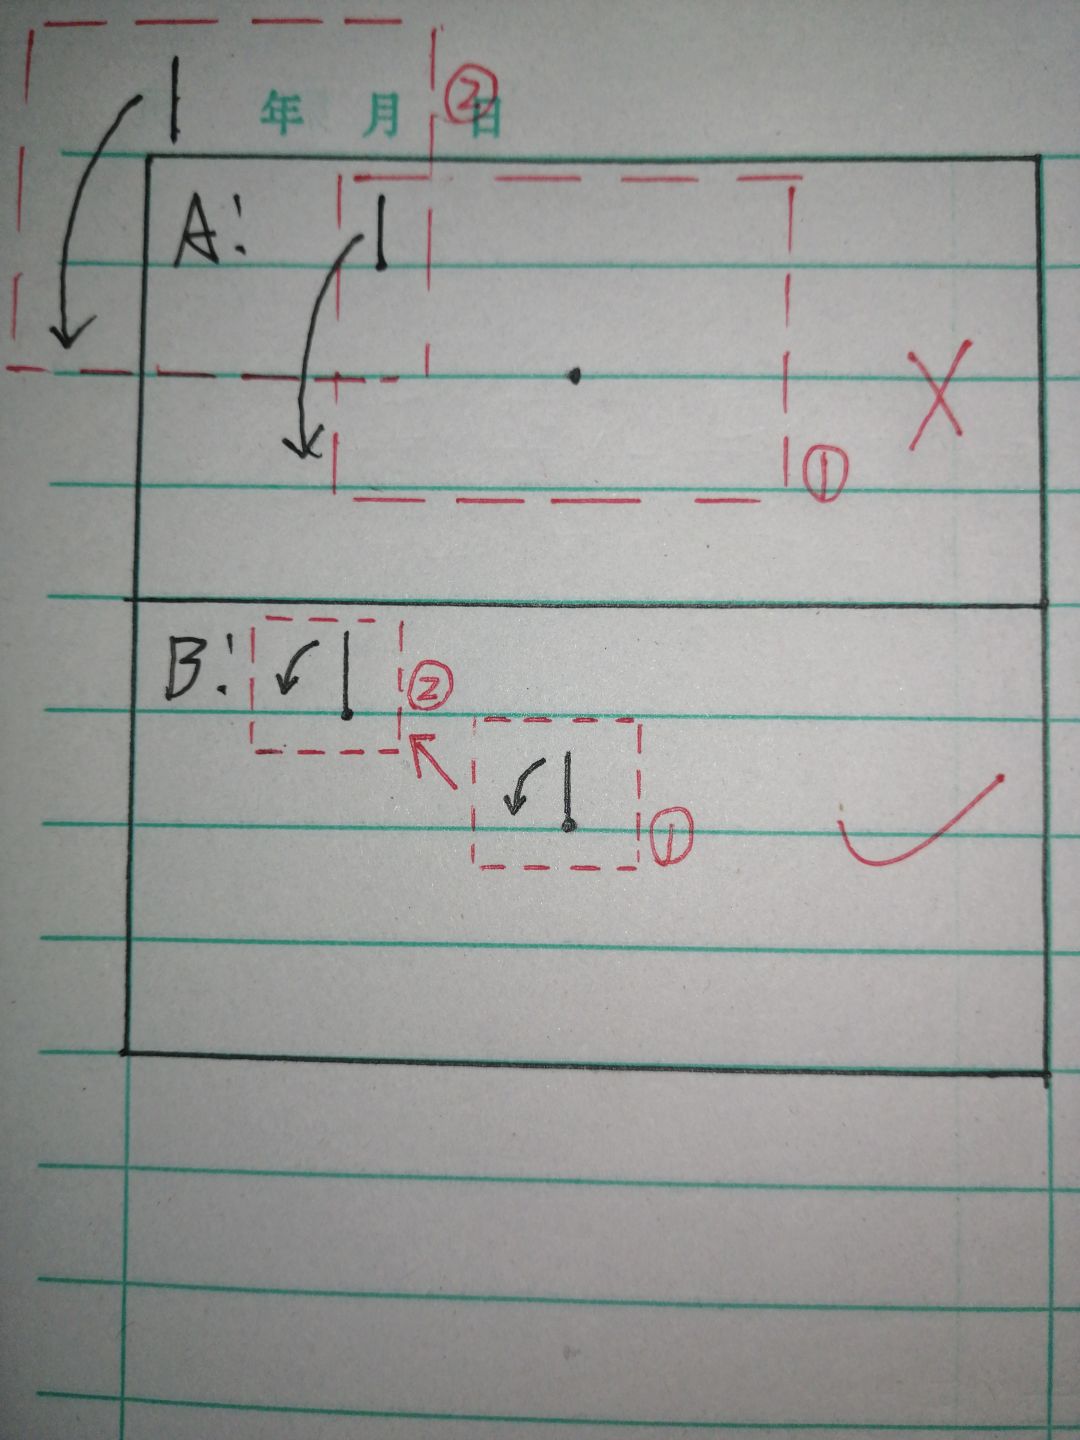 年 月 日 ②
A:
①
B: ②
①